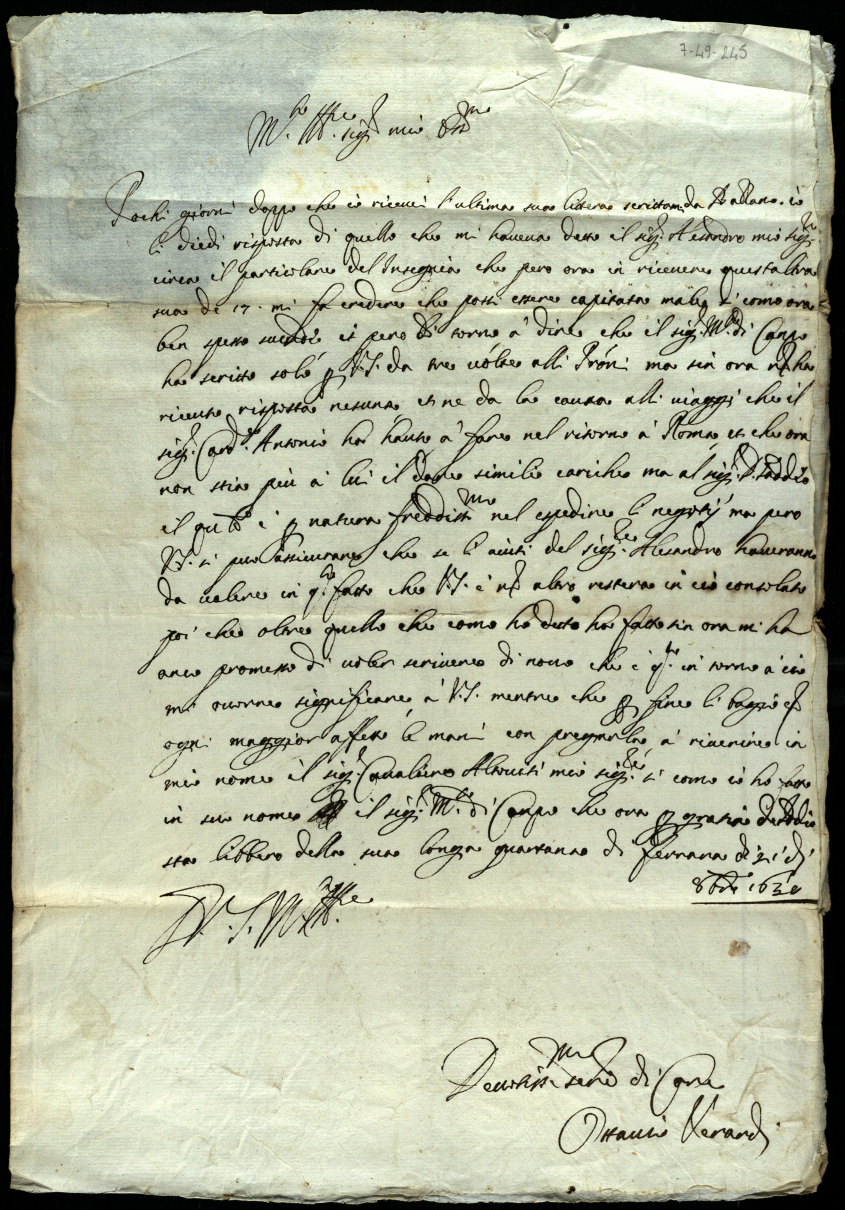 7-49-245
M.to Ill.re sig.r mio Oss.mo
Pochi giorni doppo che io riceui l'ultima sua littera scrittami da io
li diedi risposta di quello che mi haueua detto il sig.r Alesandro mio sig.re
circa il particolare del Insegnia che pero ora in riceuere questa altra
sua de 17. mi fa credere che possi essere capitata male si come ora
ben spesso et pero li torno a dire che il sig.r M.se di Campo
ha scritto solo p V.S. da tre uolte alli Proni ma sin ora nō ha
riceuto risposta nesuna et ne da la causa alli uiaggi che il
sig.r Card.le Antonio ha hauto a fare nel ritorno a Roma et che ora
non stia più a lui il dare simili cariche ma al sig.r D. Taddio
il qu.le è p natura freddiss.mo nel espedire li negotij ma pero
V.S. si puo assicurare che se li aiuti del sig.re Alesandro haueranno
da ualere in q.to fatto che V.S. è nō altro restera in ciò consolato
poi che oltre quello che come ho detto ha fatto sin ora mi ha
anco promesso di uoler scriuere di nouo che è q.to in torno a ciò
mi ocorre significare a V.S. mentre che p fine li bagio cō
ogni maggior affetto le mani con pregarla a riuerire in
mio nome il sig.r Caualiere mio sig.re si come io ho fatto
in suo nome il sig.r M.se di Campo che ora p gratia de Dio
sta libbero della sua longa quartana di Ferrara di 21 di
8bre 163
D V. S. M. Ill.re
Deuotiss.mo ser.re di Core
Ottauio Verardi